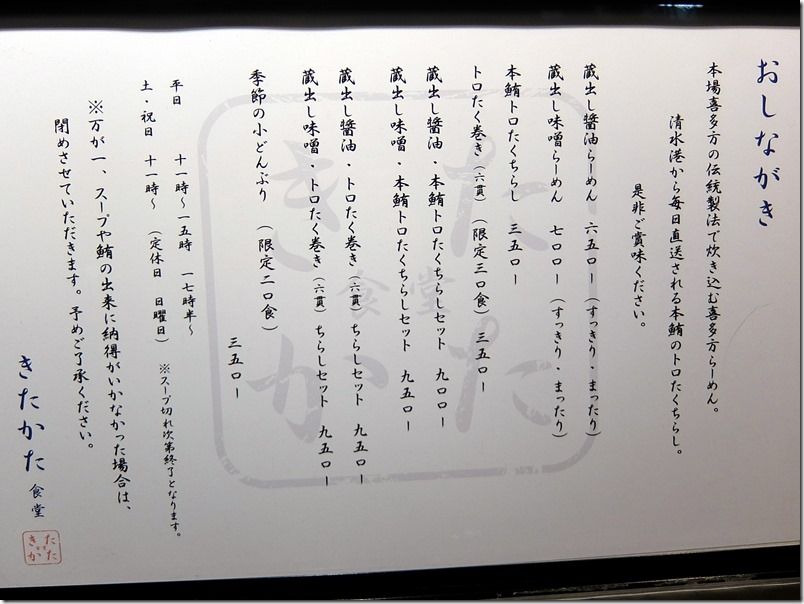 おしながき
本場喜多方の伝統製法で炊き込む喜多方らーめん。
清水港から毎日直送される本鮪のトロたくちらし。
是非ご賞味ください。
蔵出し醤油らーめん 六五〇ー（すっきり・まったり）
蔵出し味噌らーめん 七〇〇ー（すっきり・まったり）
本鮪トロたくちらし 三五〇ー
トロたく巻き（六貫）（限定三〇食）三五〇ー
蔵出し醤油・本鮪トロたくちらしセット 九〇〇ー
蔵出し味噌・本鮪トロたくちらしセット 九五〇ー
蔵出し醤油・トロたく巻き（六貫）ちらしセット 九五〇ー
蔵出し味噌・トロたく巻き（六貫）ちらしセット 九五〇ー
季節の小どんぶり （限定二〇食） 三五〇ー
平日 十一時〜一五時 一七時半〜
土・祝日 十一時〜 （定休日 日曜日） ※スープ切れ次第終了となります。
※万が一、スープや鮪の出来に納得がいかなかった場合は、
閉めさせていただきます。予めご了承ください。
きたかた 食堂
きた
かた
きた
かた
食堂